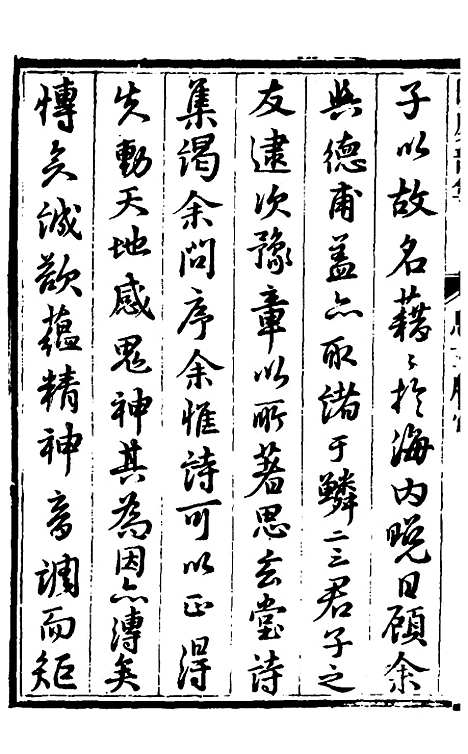 子以故名藉〻於海內晚日顧余
與德甫蓋亦取緒于鱗二三君子之
友逮次豫章以所著思玄堂詩
集謁余問序余惟詩可以正得
失動天地感鬼神其為因亦漙矣
慱矣誠欲蘊精神音調而矩